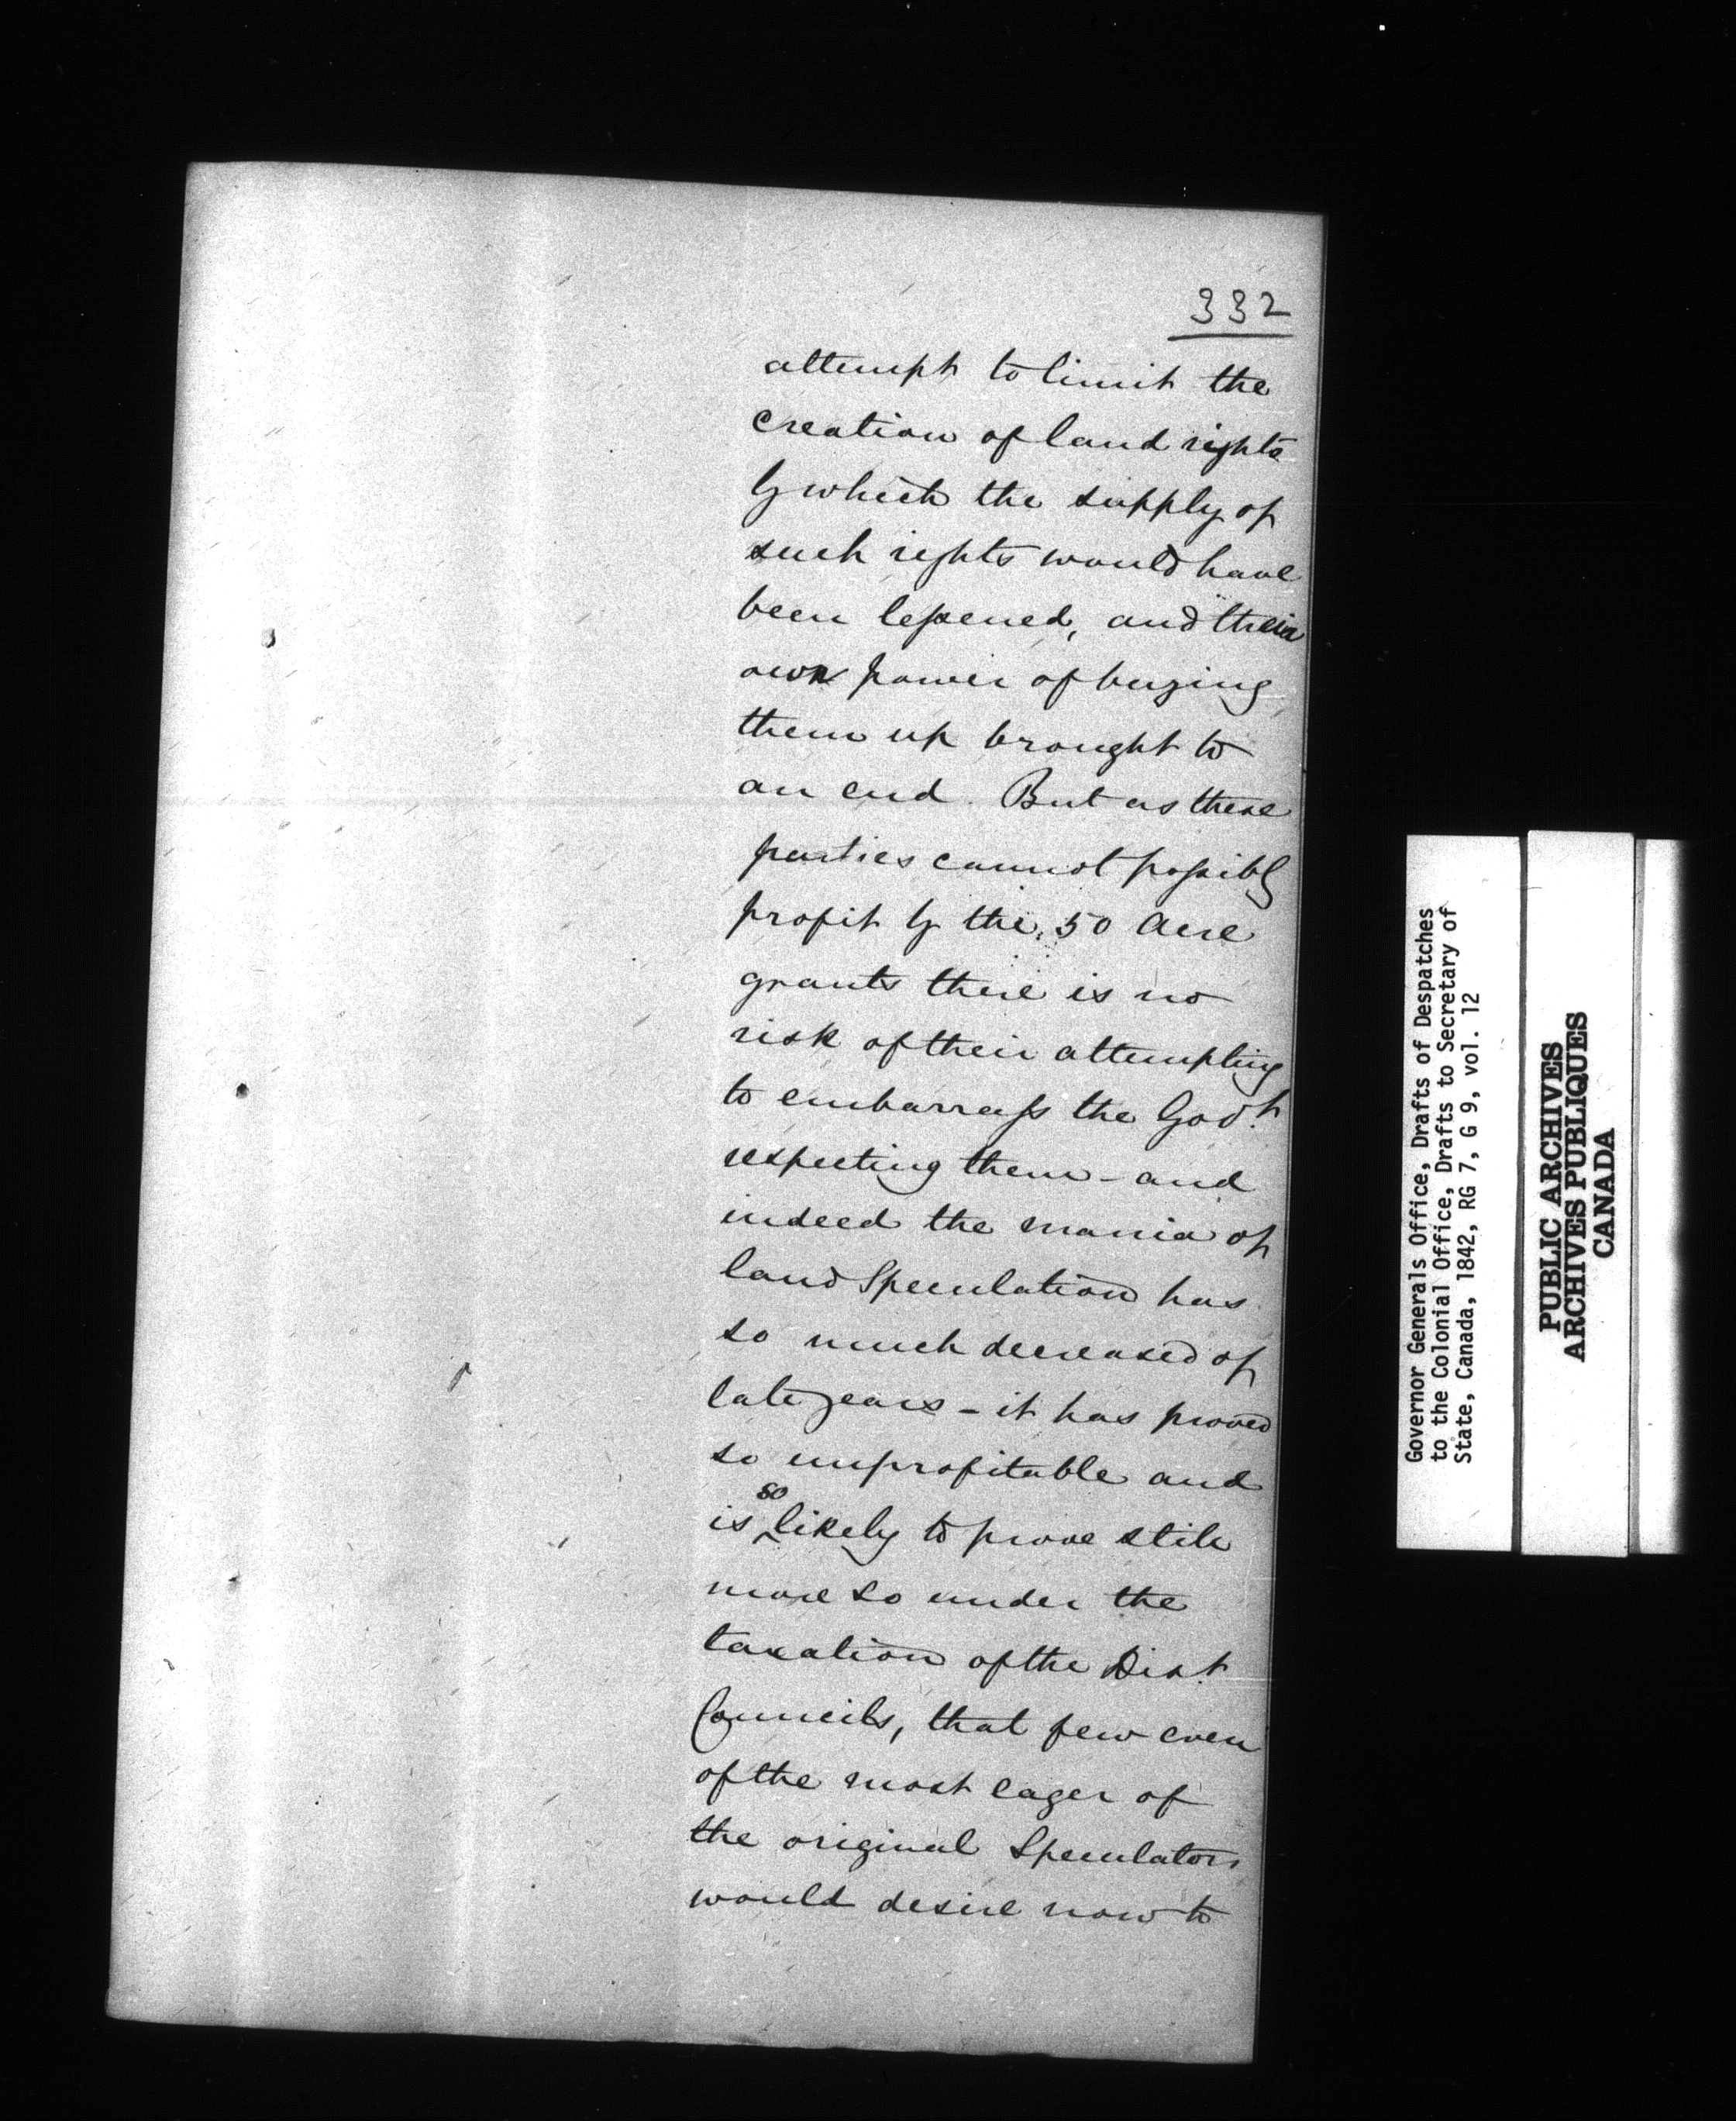 332
attempt to limit the
creation of land rights
by which the supply of
such rights would have
been lessened, and their
own power of buying
them up brought to
an end. But as these
parties cannot possibly
profit by the 50 Acre
grants there is no
risk of their attempting
to embarrass the Govt.
respecting them - and
indeed the mania of
land Speculation has
so much decreased of
late years - it has proved
so unprofitable and
is so likely to prove still
more so under the
taxation of the Dist.
Councils, that few even
of the most eager of
the original Speculators
would desire now to
Governor Generals Office, Drafts of Despatches
to the Colonial Office, Drafts to Secretary of
State, Canada, 1842, RG 7, G 9, vol. 12
PUBLIC ARCHIVES
ARCHIVES PUBLIQUES
CANADA